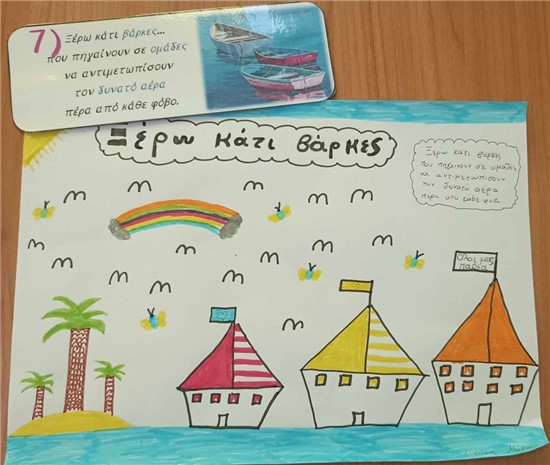 7) Ξέρω κάτι βάρκες...
που πηγαίνουν σε ομάδες
να αντιμετωπίσουν
τον δυνατό αέρα
πέρα από κάθε φόβο.
Ξέρω κάτι βάρκες
Ξέρω κάτι βάρκες
που πηγαίνουν σε ομάδες
να αντιμετωπίσουν
τον δυνατό αέρα
πέρα από κάθε φόβο
Όλοι μαζί
παρέα